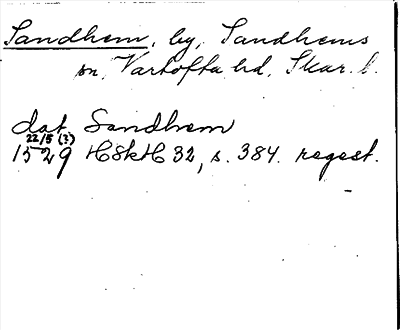 Sandhem, by, Sandhems
sn, Vartofta hd, Skar. l.
dat. Sandhem
22/5 (?)
1529 HSkH 32, s. 384. regest.